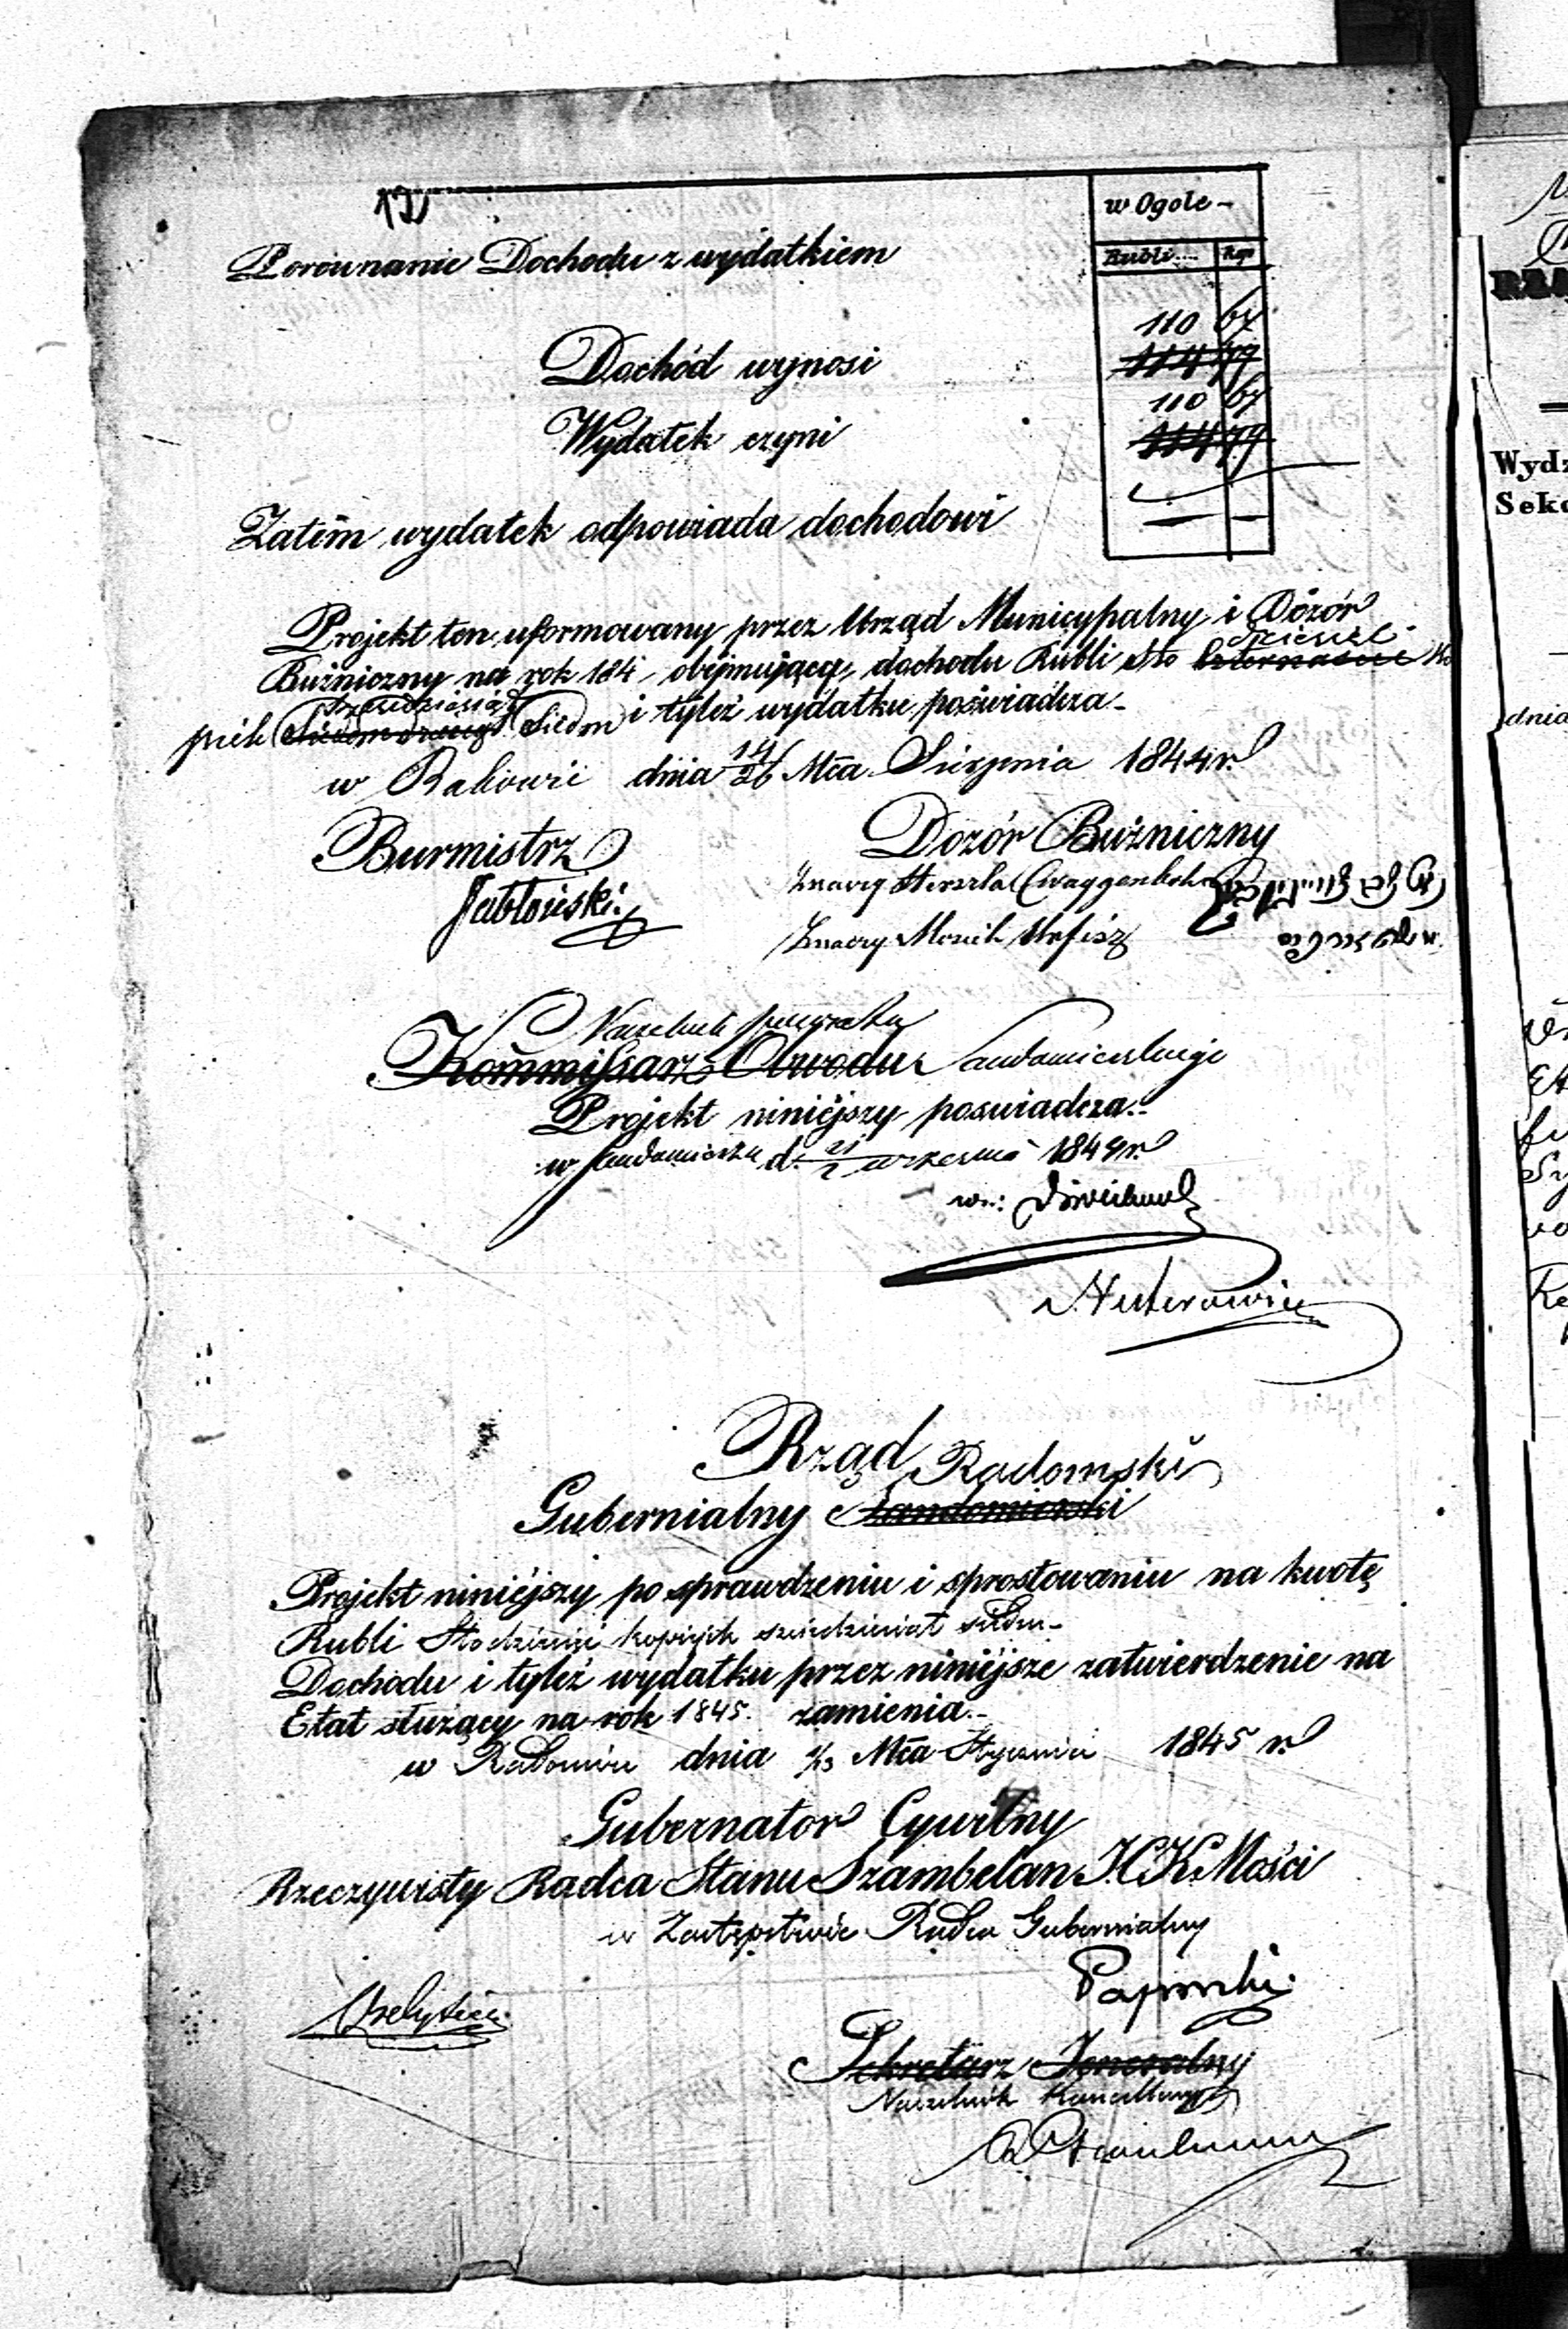 w Ogole -
Rubli Kop
Porównanie Dochodu z wydatkiem
110 67
Dochód wynosi 114 79
110 67
Wydatek czyni 114 79
Zatém wydatek odpowiada dochodowi
Projekt ten uformowany przez Urząd Municypalny i Dozór
dziesięć
Bużniczny na rok 184 obejmujący dochodu Rubli sto czternaście ko
sześćdziesiąt
piek Siedm i tyleż wydatku poświadcza -
w Rakowie dnia 14/26 Mca Sierpnia 1844 r.
Burmistrz Dozór Bużniczny
Jabłoński
Znaczy Herszla
Znaczy Moszk
Naczelnik powiatu
Kommissarz Obwodu Sandomierskiego
Projekt niniéjszy poswiadcza
w Sandomierzu d. 21/2 września 1844 r.
Rząd Radomski
Gubernialny Sandomierski
Projekt niniéjszy po sprawdzeniu i sprostowaniu na kwotę
Rubli Stodziesięć kopiejek sześćdziesiąt siedm -
Dochodu i tyleż wydatku przez niniéjsze zatwierdzenie na
Etat służący na rok 1845. zamienia -
w Radomiu dnia 1/13 Mca Stycznia 1845 r.
Gubernator Cywilny
Rzeczywisty Radca Stanu Szambelan J.C.K. Mości
w Zastępstwie Radca Gubernialny
Sekretarz Jeneralny
Naczelnik Kancellaryi